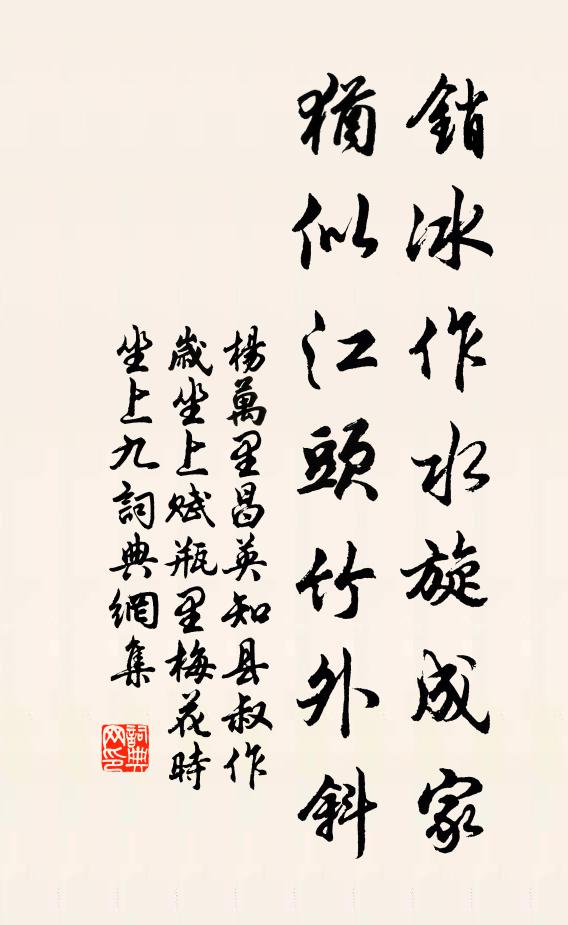 銷冰作水旋成家
猶似江頭竹外斜
楊萬里昌英知县叔作
歲坐上賦瓶里梅花時
坐上九詞典網集
詞典网印